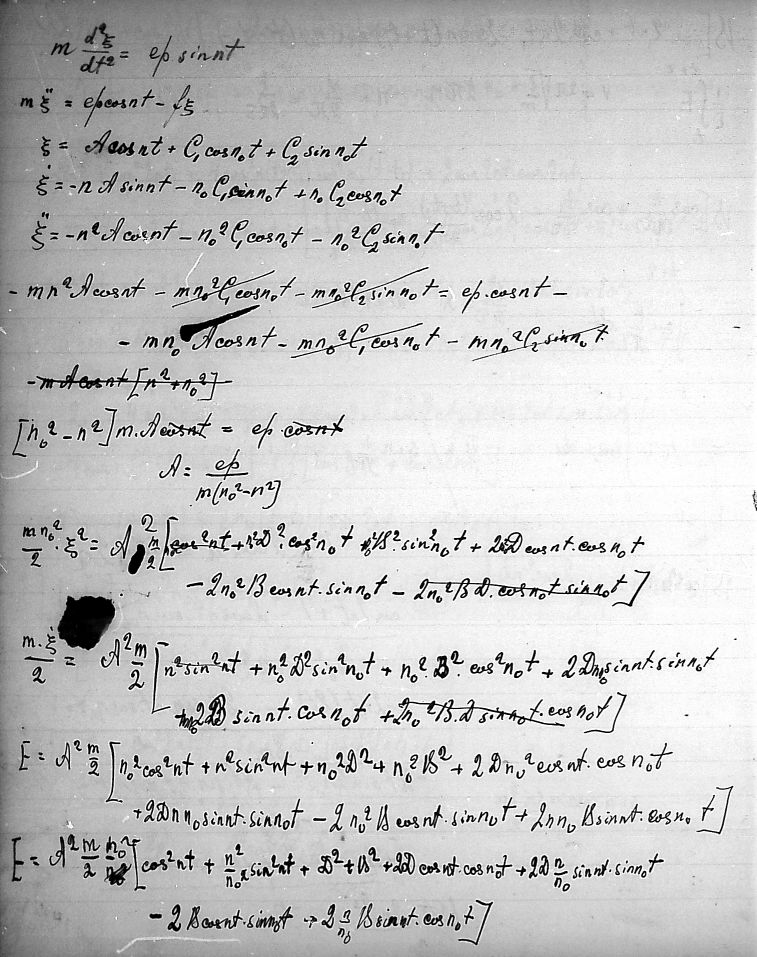 m d²ξ/dt² = ep sin nt
m ξ̈ = ep cos nt − fξ
ξ = A cos nt + C₁ cos n₀t + C₂ sin n₀t
ξ̇ = −n A sin nt − n₀ C₁ sin n₀t + n₀ C₂ cos n₀t
ξ̈ = −n² A cos nt − n₀² C₁ cos n₀t − n₀² C₂ sin n₀t
− mn² A cos nt − mn₀² C₁ cos n₀t − mn₀² C₂ sin n₀t = ep · cos nt −
− mn₀ A cos nt − mn₀² C₁ cos n₀t − mn₀² C₂ sin n₀t
− m A cos nt [n² + n₀²]
[n₀² − n²] m · A cos nt = ep · cos nt
A = ep / m(n₀² − n²]
mn₀²/2 · ξ² = A² m/2 [cos² nt + n²D² · cos² n₀t n₀²B² · sin² n₀t + 2D cos nt · cos n₀t
− 2n₀² B cos nt · sin n₀t − 2n₀² B D · cos n₀t sin n₀t]
m · ξ̇/2 = A² m/2 [n² sin² nt + n₀² D² sin² n₀t + n₀² · B² · cos² n₀t + 2Dnn₀ sin nt · sin n₀t
2B sin nt · cos n₀t + 2n₀² B · D sin n₀t · cos n₀t]
E = A² m/2 [n₀² cos² nt + n² sin² nt + n₀² D² + n₀² B² + 2Dn₀² cos nt · cos n₀t
+ 2Dn n₀ sin nt · sin n₀t − 2n₀² B cos nt · sin n₀t + 2nn₀ B sin nt · cos n₀t]
E = A² m/2 n₀² [cos² nt + n²/n₀² sin² nt + D² + B² + 2D cos nt · cos n₀t + 2D n/n₀ sin nt · sin n₀t
− 2B cos nt · sin n₀t + 2 n/n₀ B sin nt · cos n₀t]